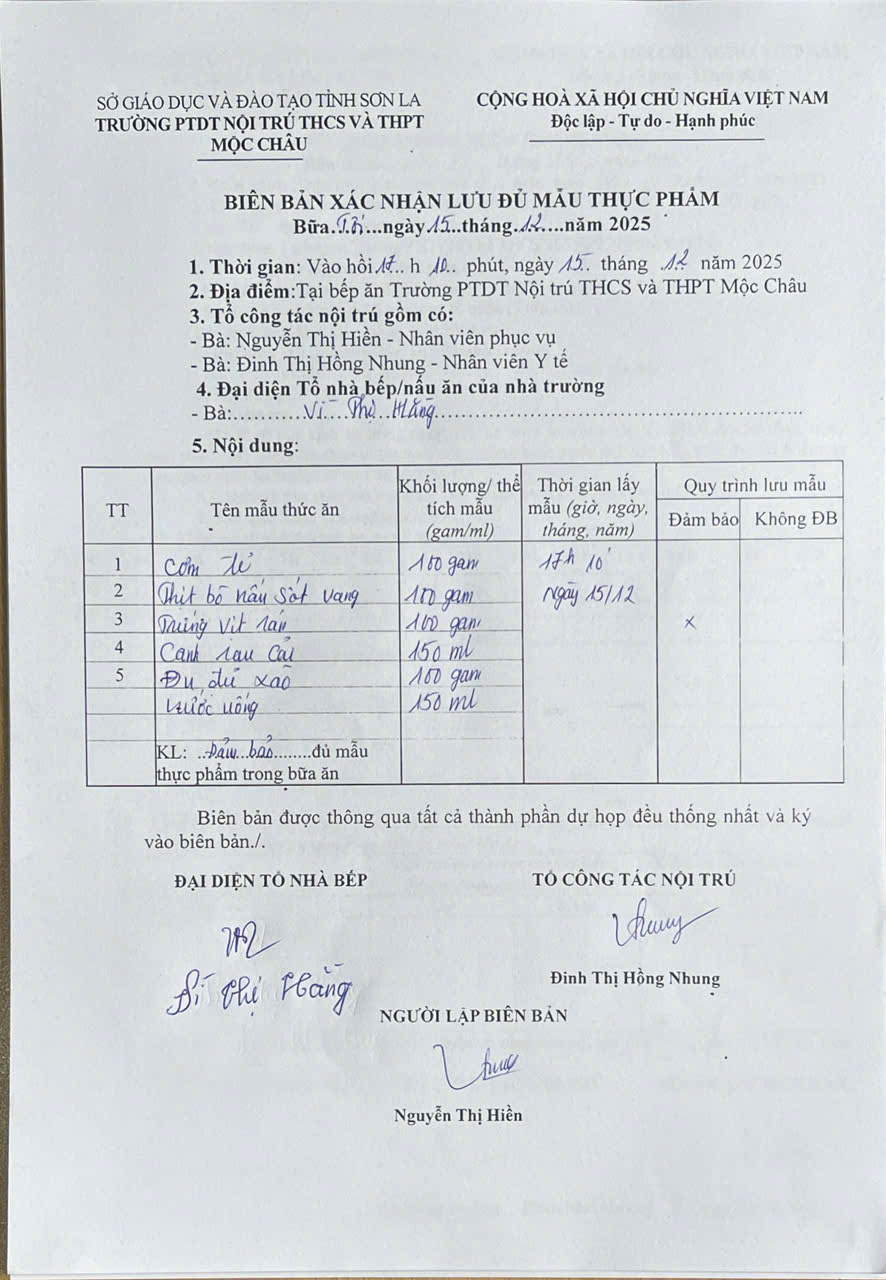 SỞ GIÁO DỤC VÀ ĐÀO TẠO TỈNH SƠN LA
TRƯỜNG PTDT NỘI TRÚ THCS VÀ THPT
MỘC CHÂU
CỘNG HOÀ XÃ HỘI CHỦ NGHĨA VIỆT NAM
Độc lập - Tự do - Hạnh phúc
BIÊN BẢN XÁC NHẬN LƯU ĐỦ MẪU THỰC PHẨM
Bữa.Tối...ngày 15..tháng.12....năm 2025
1. Thời gian: Vào hồi 17.. h 10.. phút, ngày 15.. tháng .12 năm 2025
2. Địa điểm:Tại bếp ăn Trường PTDT Nội trú THCS và THPT Mộc Châu
3. Tổ công tác nội trú gồm có:
- Bà: Nguyễn Thị Hiền - Nhân viên phục vụ
- Bà: Đinh Thị Hồng Nhung - Nhân viên Y tế
4. Đại diện Tổ nhà bếp/nấu ăn của nhà trường
- Bà:..........Vì Thị Hằng..........
5. Nội dung:
TT
Tên mẫu thức ăn
Khối lượng/ thể tích mẫu (gam/ml)
Thời gian lấy mẫu (giờ, ngày, tháng, năm)
Quy trình lưu mẫu
Đảm bảo
Không ĐB
1 Cơm tẻ 100 gam 17h 10'
2 Thịt bò nấu sốt vang 100 gam Ngày 15/12
3 Trứng vịt rán 100 gam x
4 Canh rau cải 150 ml
5 Đu đủ xào 100 gam
Nước uống 150 ml
KL: ..Đảm bảo.......đủ mẫu
thực phẩm trong bữa ăn
Biên bản được thông qua tất cả thành phần dự họp đều thống nhất và ký
vào biên bản./.
ĐẠI DIỆN TỔ NHÀ BẾP
TỔ CÔNG TÁC NỘI TRÚ
Nhung
Vì Thị Hằng
Đinh Thị Hồng Nhung
NGƯỜI LẬP BIÊN BẢN
Nguyễn Thị Hiền